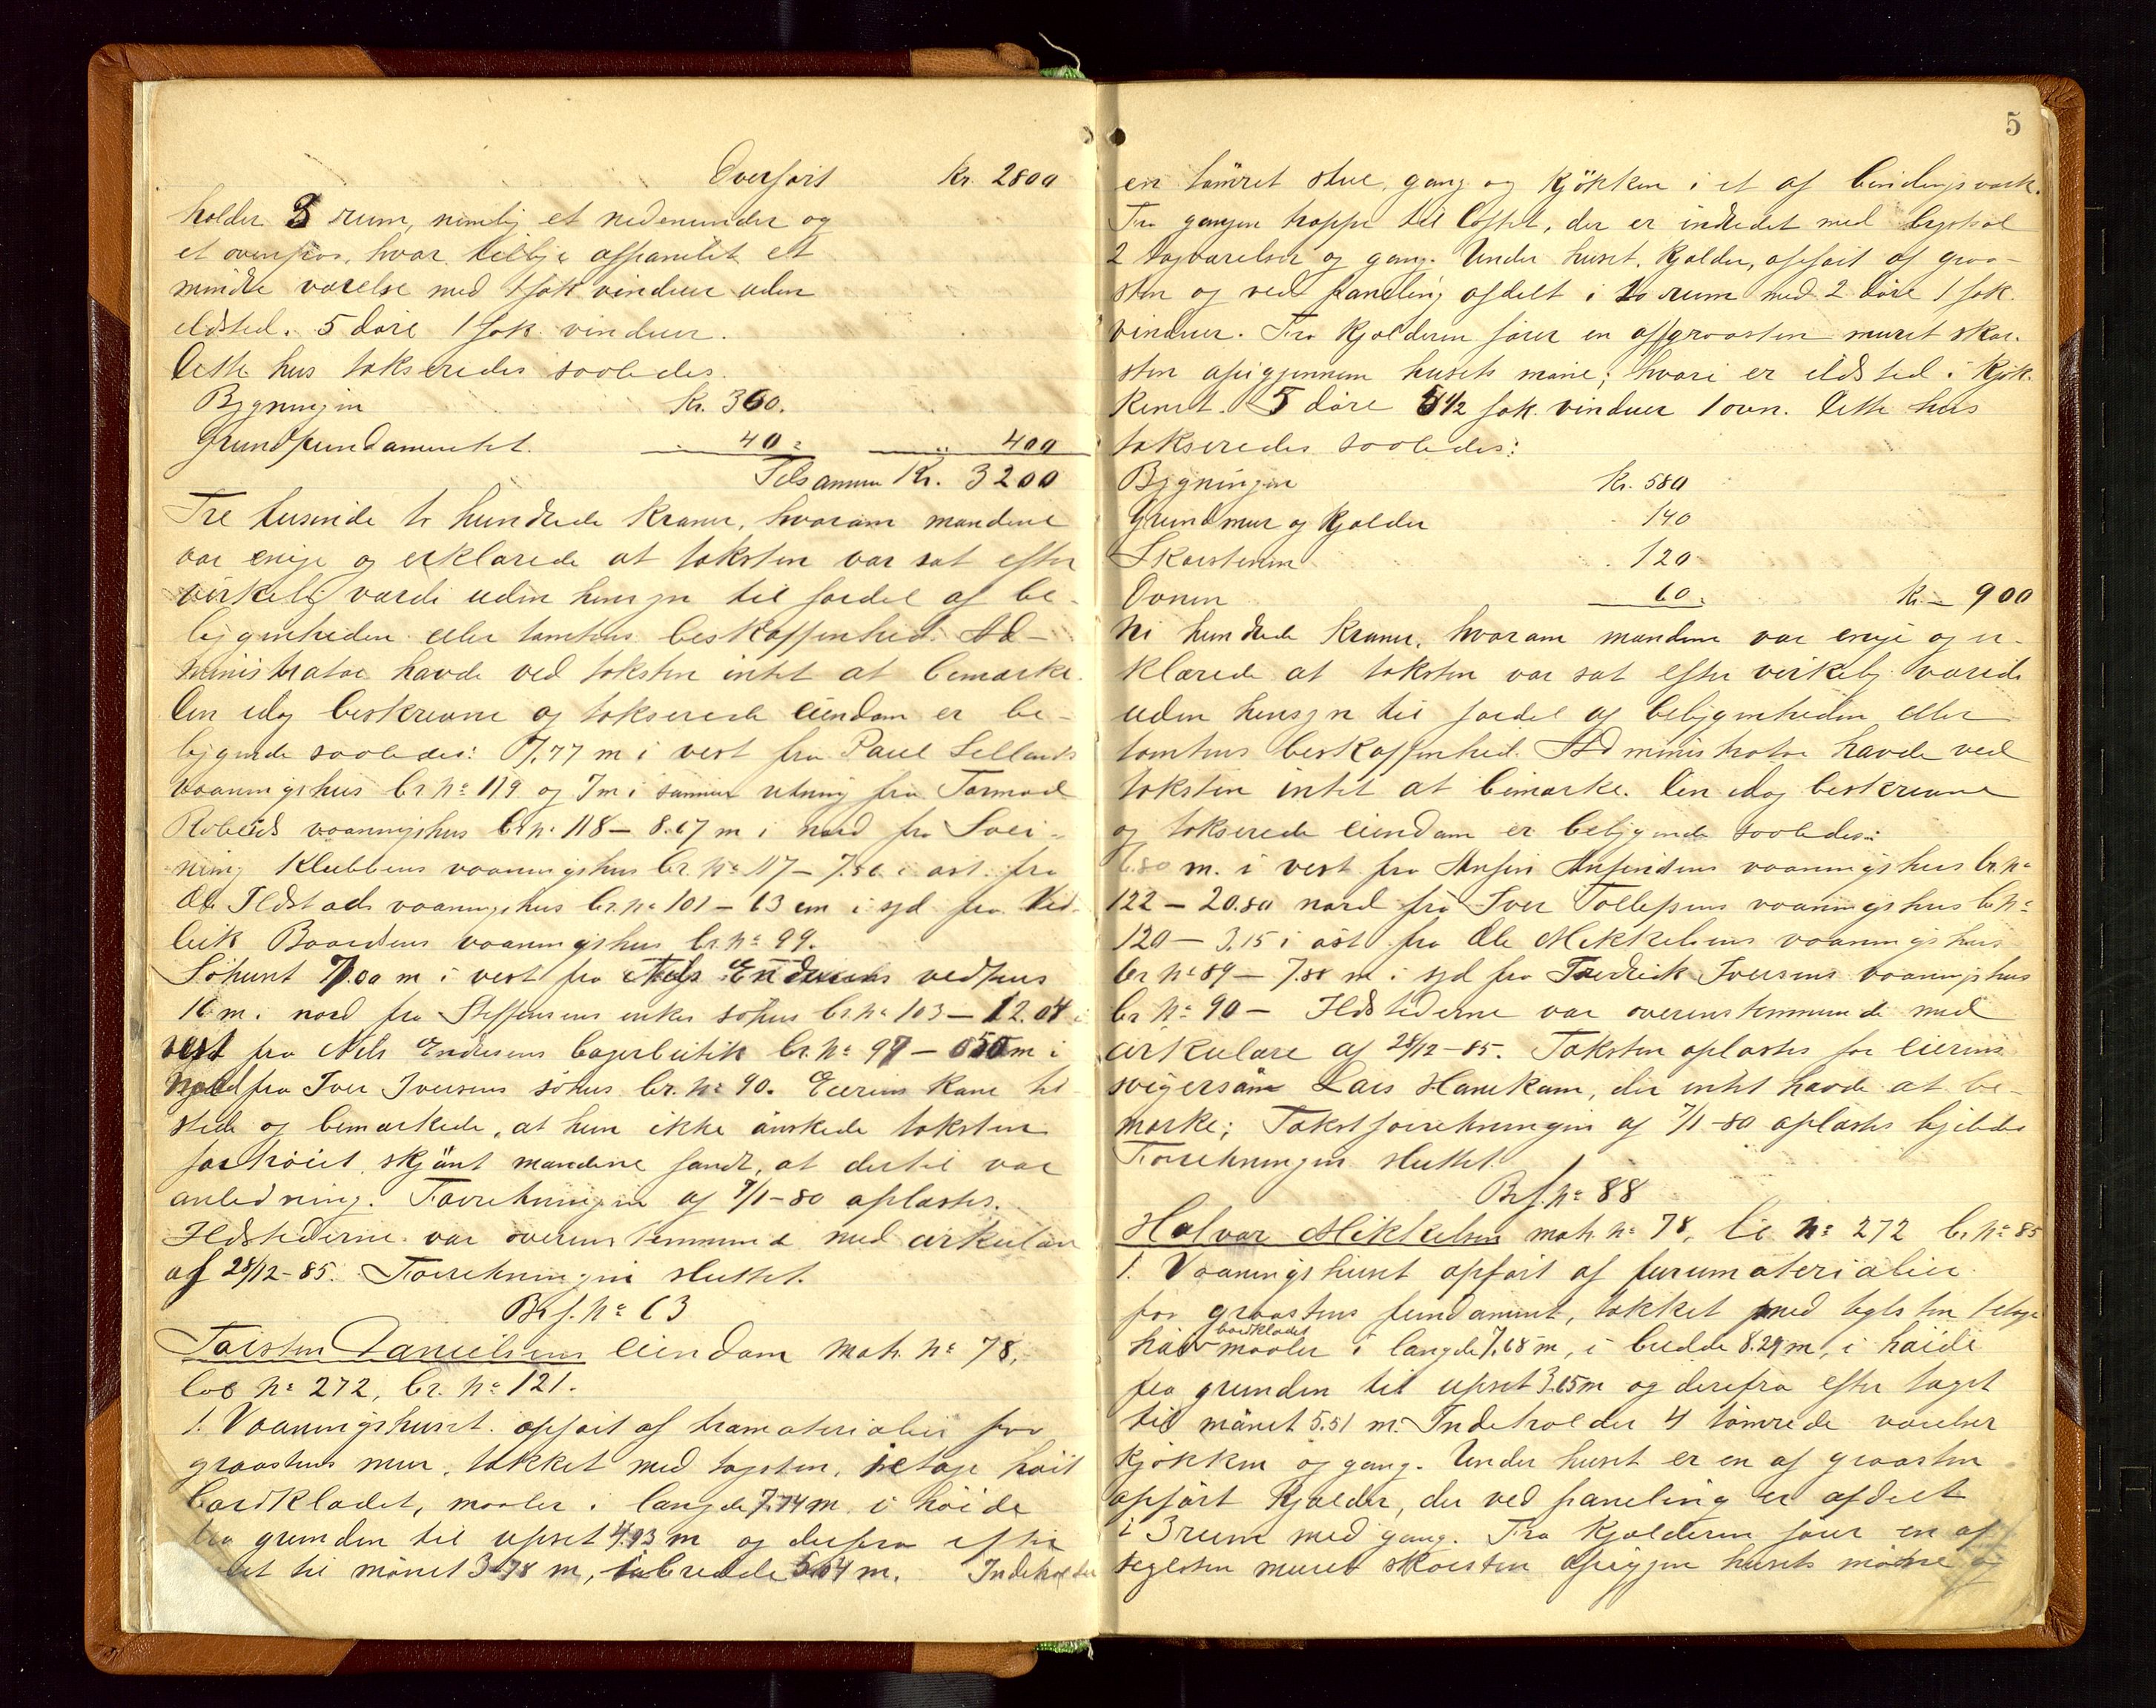 Overført Kr. 2800
holder 3 rum, nemlig et nedenunder og
et ovenpaa, hvor tillige afpanelet et
mindre værelse med 1 fak vinduer uden
ildsted. 5 døre 1 fak. vinduer.
Dette hus takseredes saaledes.
Bygningen Kr. 360.
Grundfundamentet. 40 : 400
Tilsammen Kr. 3200
Tre tusinde to hundrede Kroner, hvorom mændene
var enige og erklærede at taksten var sat efter
virkelig værdi uden hensyn til fordel af be-
liggenheden eller tomtens beskaffenhed. Ad-
ministrator havde ved taksten intet at bemærke.
Den idag beskrevne og takserede eiendom er be-
liggende saaledes: 7.77 m i vest fra Paul Sellands
vaaningshus br. nº 119 og 7 m i samme retning fra Tormod
Robeids vaaningshus br. n. 118 – 8.67 m i nord fra Svei-
nung Klubbens vaaningshus br. nº 117 – 7.56 i øst fra
Ole Ildstads vaaningshus br. nº 101 – 63 cm i syd fra Ved-
leik Baardsens vaaningshus br. nº 99.
Søhuset 7.00 m i vest fra Nels Endresens vedhus
16 m. nord fra Steffensens enkes søhus br. nº 103 – 12.04 i
vest fra Nels Endresens bagerbutik br. nº 97 – 0.50 m i
syd fra Iver Iversens søhus br. nº 90. Eierens kone til-
stede og bemærkede, at hun ikke ønskede taksten
forhøiet, skjønt mændene fandt, at dertil var
anledning. Forretningen af 7/1-80 oplæstes.
Ildstederne var overensstemmende med cirkulære
af 28/12-85. Forretningen sluttet.
Brf. nº 63
Torsten Danielsens eiendom matr. nº 78,
løb nº 272, br. nº 121.
1. Vaaningshuset opført af træmaterialier paa
graastens mur, tækket med tagsten, 1 etage høit
bordklædet, maaler i længde 7.74 m i høide
fra grunden til upset 4.93 m og derfra efter
taget til mønet 3.78 m, i bredde 5.64 m. Indeholder
5
en tømret stue, gang og kjøkken i et af bindingsværk.
Fra gangen trappe til loftet, der er indredet med brystsal
2 tagværelser og gang. Under huset, kjælder, opført af graa-
sten og ved paneling afdelt i to rum med 2 døre 1 fak.
vinduer. Fra kjælderen fører en af graasten muret skor-
sten opigjennem husets møne; hvori er ildsted i kjøk-
kenet. 5 døre 5 1/2 fak. vinduer 1 ovn. Dette hus
takseredes saaledes:
Bygningen Kr. 580
Grundmur og kjælder 140
Skorstenen 120
Ovnen 60 : Kr. – 900
Ni hundrede Kroner, hvorom mændene var enige og er-
klærede at taksten var sat efter virkelig værdi
uden hensyn til fordel af beliggenheden eller
tomtens beskaffenhed. Administrator havde ved
taksten intet at bemærke. Den idag beskrevne
og takserede eiendom er beliggende saaledes:
6.80 m. i vest fra Anfin Anfindsens vaaningshus br. nº
122 – 20.80 nord fra Iver Tollefsens vaaningshus br nº
120 – 3.15 i øst fra Ole Mikkelsens vaaningshus
br nº 89 – 7.88 m i syd fra Fredrick Iversens vaaningshus
br. nº 90 – Ildstederne var overensstemmende med
cirkulære af 28/12-85. Taksten oplæstes for eierens
svigersøn Lars Hanekam, der intet havde at be-
mærke; Takstforretningen af 7/1-80 oplæstes ligeledes
Forretningen sluttet.
Brf. nº 88
Halvar Mikkelsens matr. nº 78, lb nº 272 br. nº 85
1. Vaaningshuset opført af furumaterialier
paa graastens fundament, tækket med teglsten 1 etage
høit bordklædet maaler i længde 7.68 m, i bredde 8.29 m, i høide
fra grunden til upset 3.65 m og derfra efter taget
til mønet 5.51 m. Indeholder 4 tømrede værelser
kjøkken og gang. Under huset er en af graasten
opført kjælder, der ved paneling er afdelt
i 3 rum med gang. Fra kjælderen fører en af
teglsten muret skorsten opigjen husets møne og